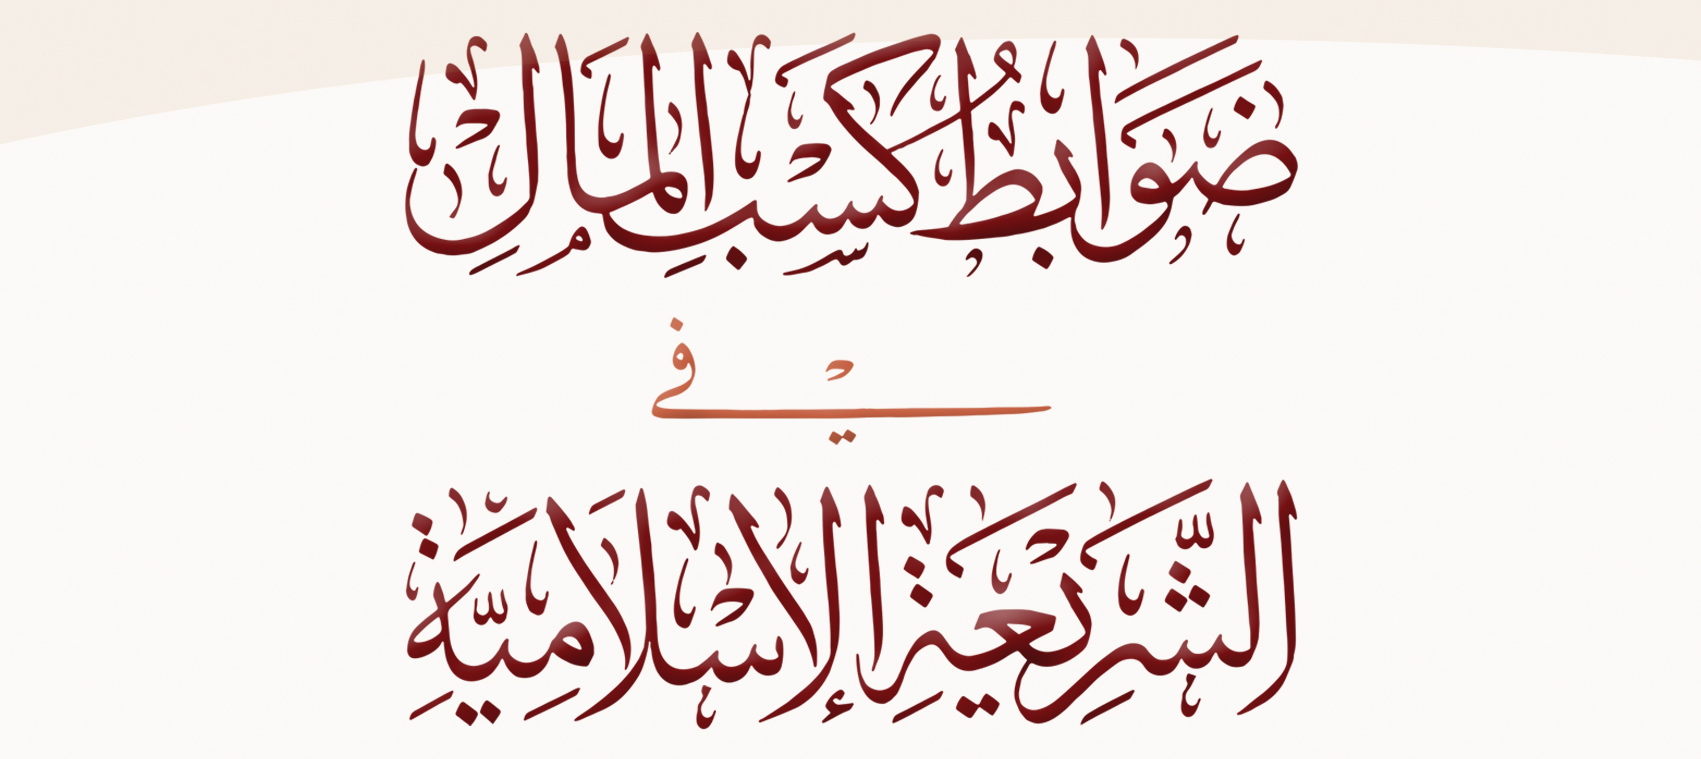 ضَوَابِطُ كَسْبِ الْمَالِ
فِي
الشَّرِيْعَةِ الإِسْلَامِيَّةِ